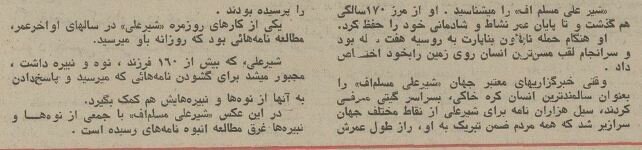 «شیر علی مسلم اف» را میشناسید . او از مرز ۱۷۰سالگی
هم گذشت و تا پایان عمر نشاط و شادمانی خود را حفظ کرد.
او هنگام حمله ناپلئون بناپارت به روسیه هفت له بود
و سرانجام لقب مسن‌ترین انسان روی زمین رابخود اختصاص
داد .
وقتی خبرگزاریهای معتبر جهان «شیرعلی مسلم‌اف» را
بعنوان سالمندترین انسان کره خاکی، بسراسر گیتی معرفی
کردند، سیل هزاران نامه برای شیرعلی از نقاط مختلف جهان
سرازیر شد که همه مردم ضمن تبریک به او، راز طول عمرش
را پرسیده بودند .
یکی از کارهای روزمره «شیرعلی» در سالهای اواخرعمر،
مطالعه نامه‌هائی بود که روزانه باو میرسید.
شیرعلی، که بیش از ۱۶۰ فرزند ، نوه و نبیره داشت ،
مجبور میشد برای گشودن نامه‌هائی که میرسید و پاسخ‌دادن
به آنها از نوه‌ها و نبیره‌هایش هم کمک بگیرد.
در این عکس «شیرعلی مسلم‌اف» با جمعی از نوه‌هـا و
نبیره‌ها غرق مطالعه انبوه نامه‌های رسیده است .